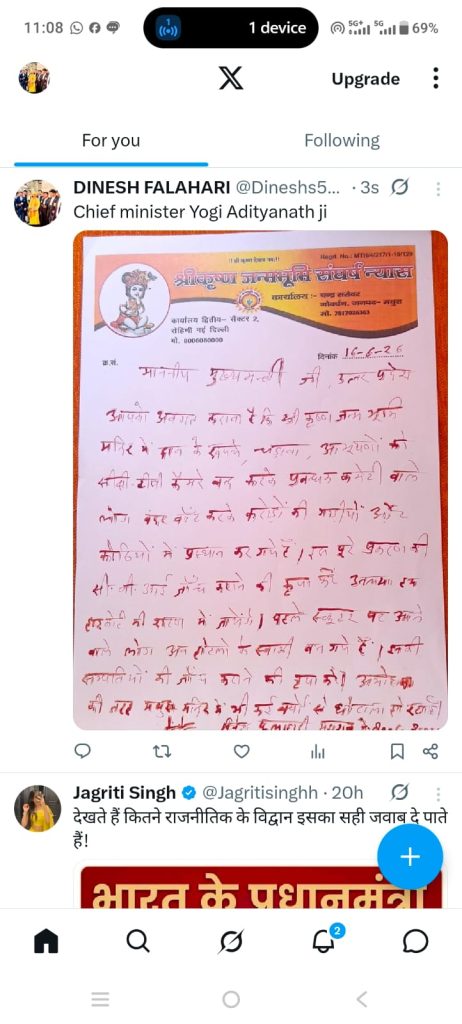 11:08
1
1 device
5G+
5G
69%
X
Upgrade
For you
Following
DINESH FALAHARI @Dineshs5... · 3s
Chief minister Yogi Adityanath ji
श्रीकृष्ण जन्मभूमि संघर्ष न्यास
कार्यालय :-
गोवर्धन, जनपद- मथुरा
कार्यालय द्वितीय- सैक्टर 2,
रोहिणी नई दिल्ली
क्र.सं.
दिनांक 16-6-26
माननीय मुख्यमन्त्री जी, उत्तर प्रदेश
आपको अवगत कराना है कि श्री कृष्ण जन्म भूमि
मंदिर में दान के रुपये, चढ़ावा, आभूषणों को
सीसी टीवी कैमरे बन्द करके प्रबन्धक कमेटी वाले
लोग बंदर बाँट करके करोड़ों की गाड़ीयों और
कोठियों में प्रस्थान कर गये हैं। इस पूरे प्रकरण की
सी.बी.आई जाँच कराने की कृपा करें अन्यथा हम
हाईकोर्ट की शरण में जायेंगे। पहले स्कूटर पर आने
वाले लोग अब होटलों के स्वामी बन गये हैं। इनकी
सम्पत्तियों की जाँच कराने की कृपा करें। अयोध्या
की तरह मथुरा मंदिर में भी कई वर्षों से घोटाला हो रहा है।
Jagriti Singh @Jagritisinghh · 20h
देखते हैं कितने राजनीतिक के विद्वान इसका सही जवाब दे पाते
हैं!
भारत के प्रधानमंत्री
2